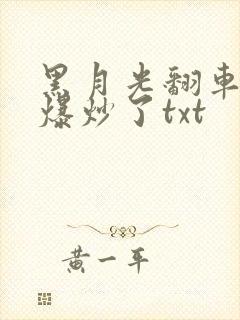 黑月光翻車
爆炒了txt
黄一平